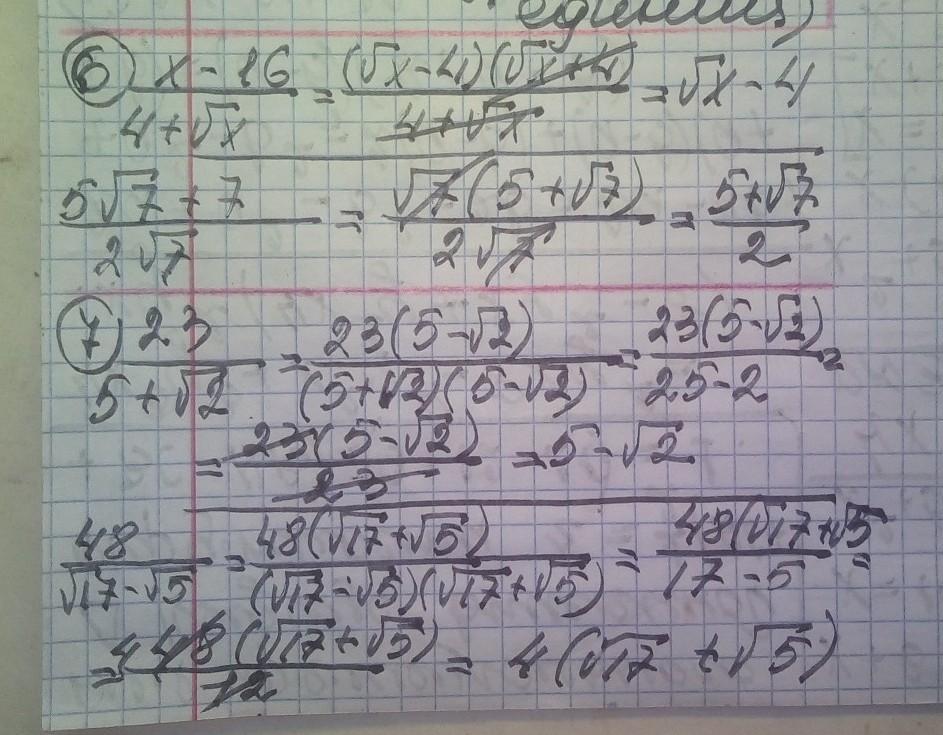 единиц)
6) (x - 16)/(4 + √x) = ((√x - 4)(√x + 4))/(4 + √x) = √x - 4
(5√7 + 7)/(2√7) = (√7(5 + √7))/(2√7) = (5 + √7)/2
7) 23/(5 + √2) = (23(5 - √2))/((5 + √2)(5 - √2)) = (23(5 - √2))/(25 - 2) =
= (23(5 - √2))/23 = 5 - √2
48/(√17 - √5) = (48(√17 + √5))/((√17 - √5)(√17 + √5)) = (48(√17 + √5)/(17 - 5) =
= (4 48(√17 + √5))/12 = 4(√17 + √5)